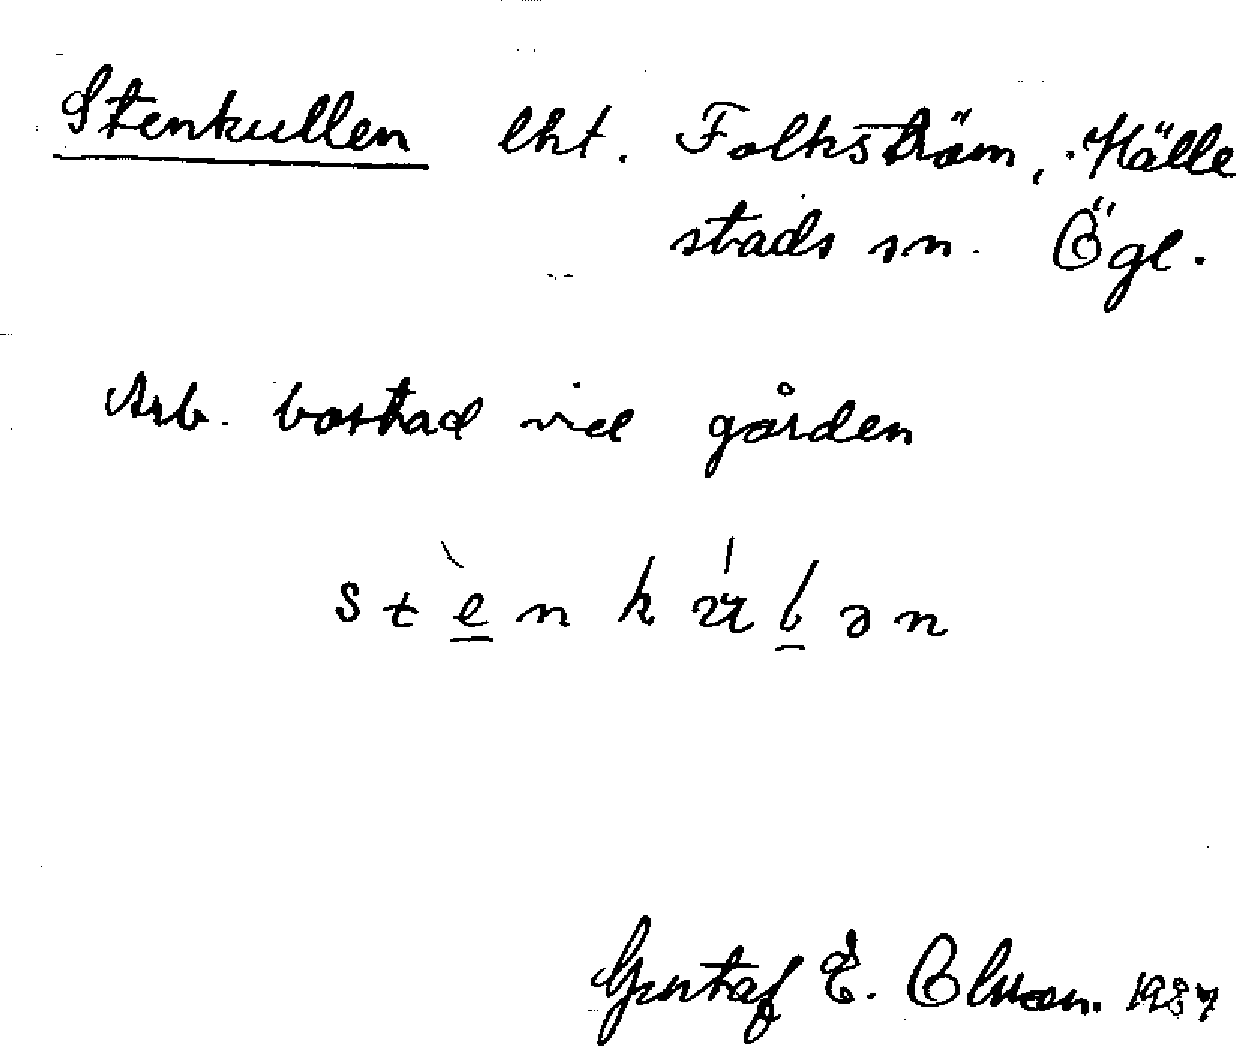 Stenkullen lht. Folkström, Hälle
stads sn. Ögl.
Arb. bostad vid gården
Gustaf E. Olsson. 1937